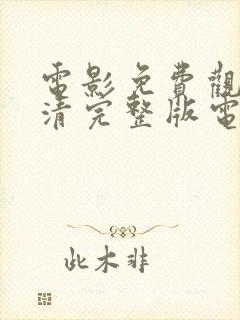 電影免費觀
清完整版電
此木非